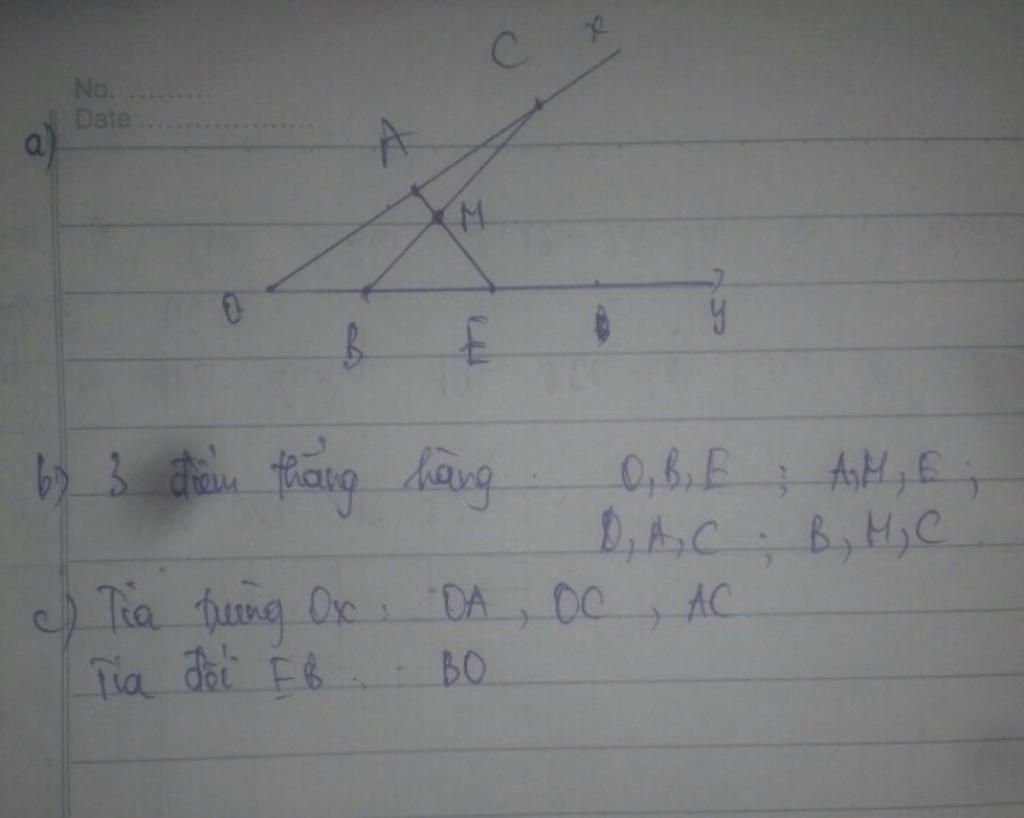 C x
No. .........
Date ...................
a)
A
M
O B E y
b) 3 điểm thẳng hàng : O, B, E ; A, M, E ;
O, A, C ; B, M, C
c) Tia trùng Ox : OA , OC , AC
Tia đối EB : BO